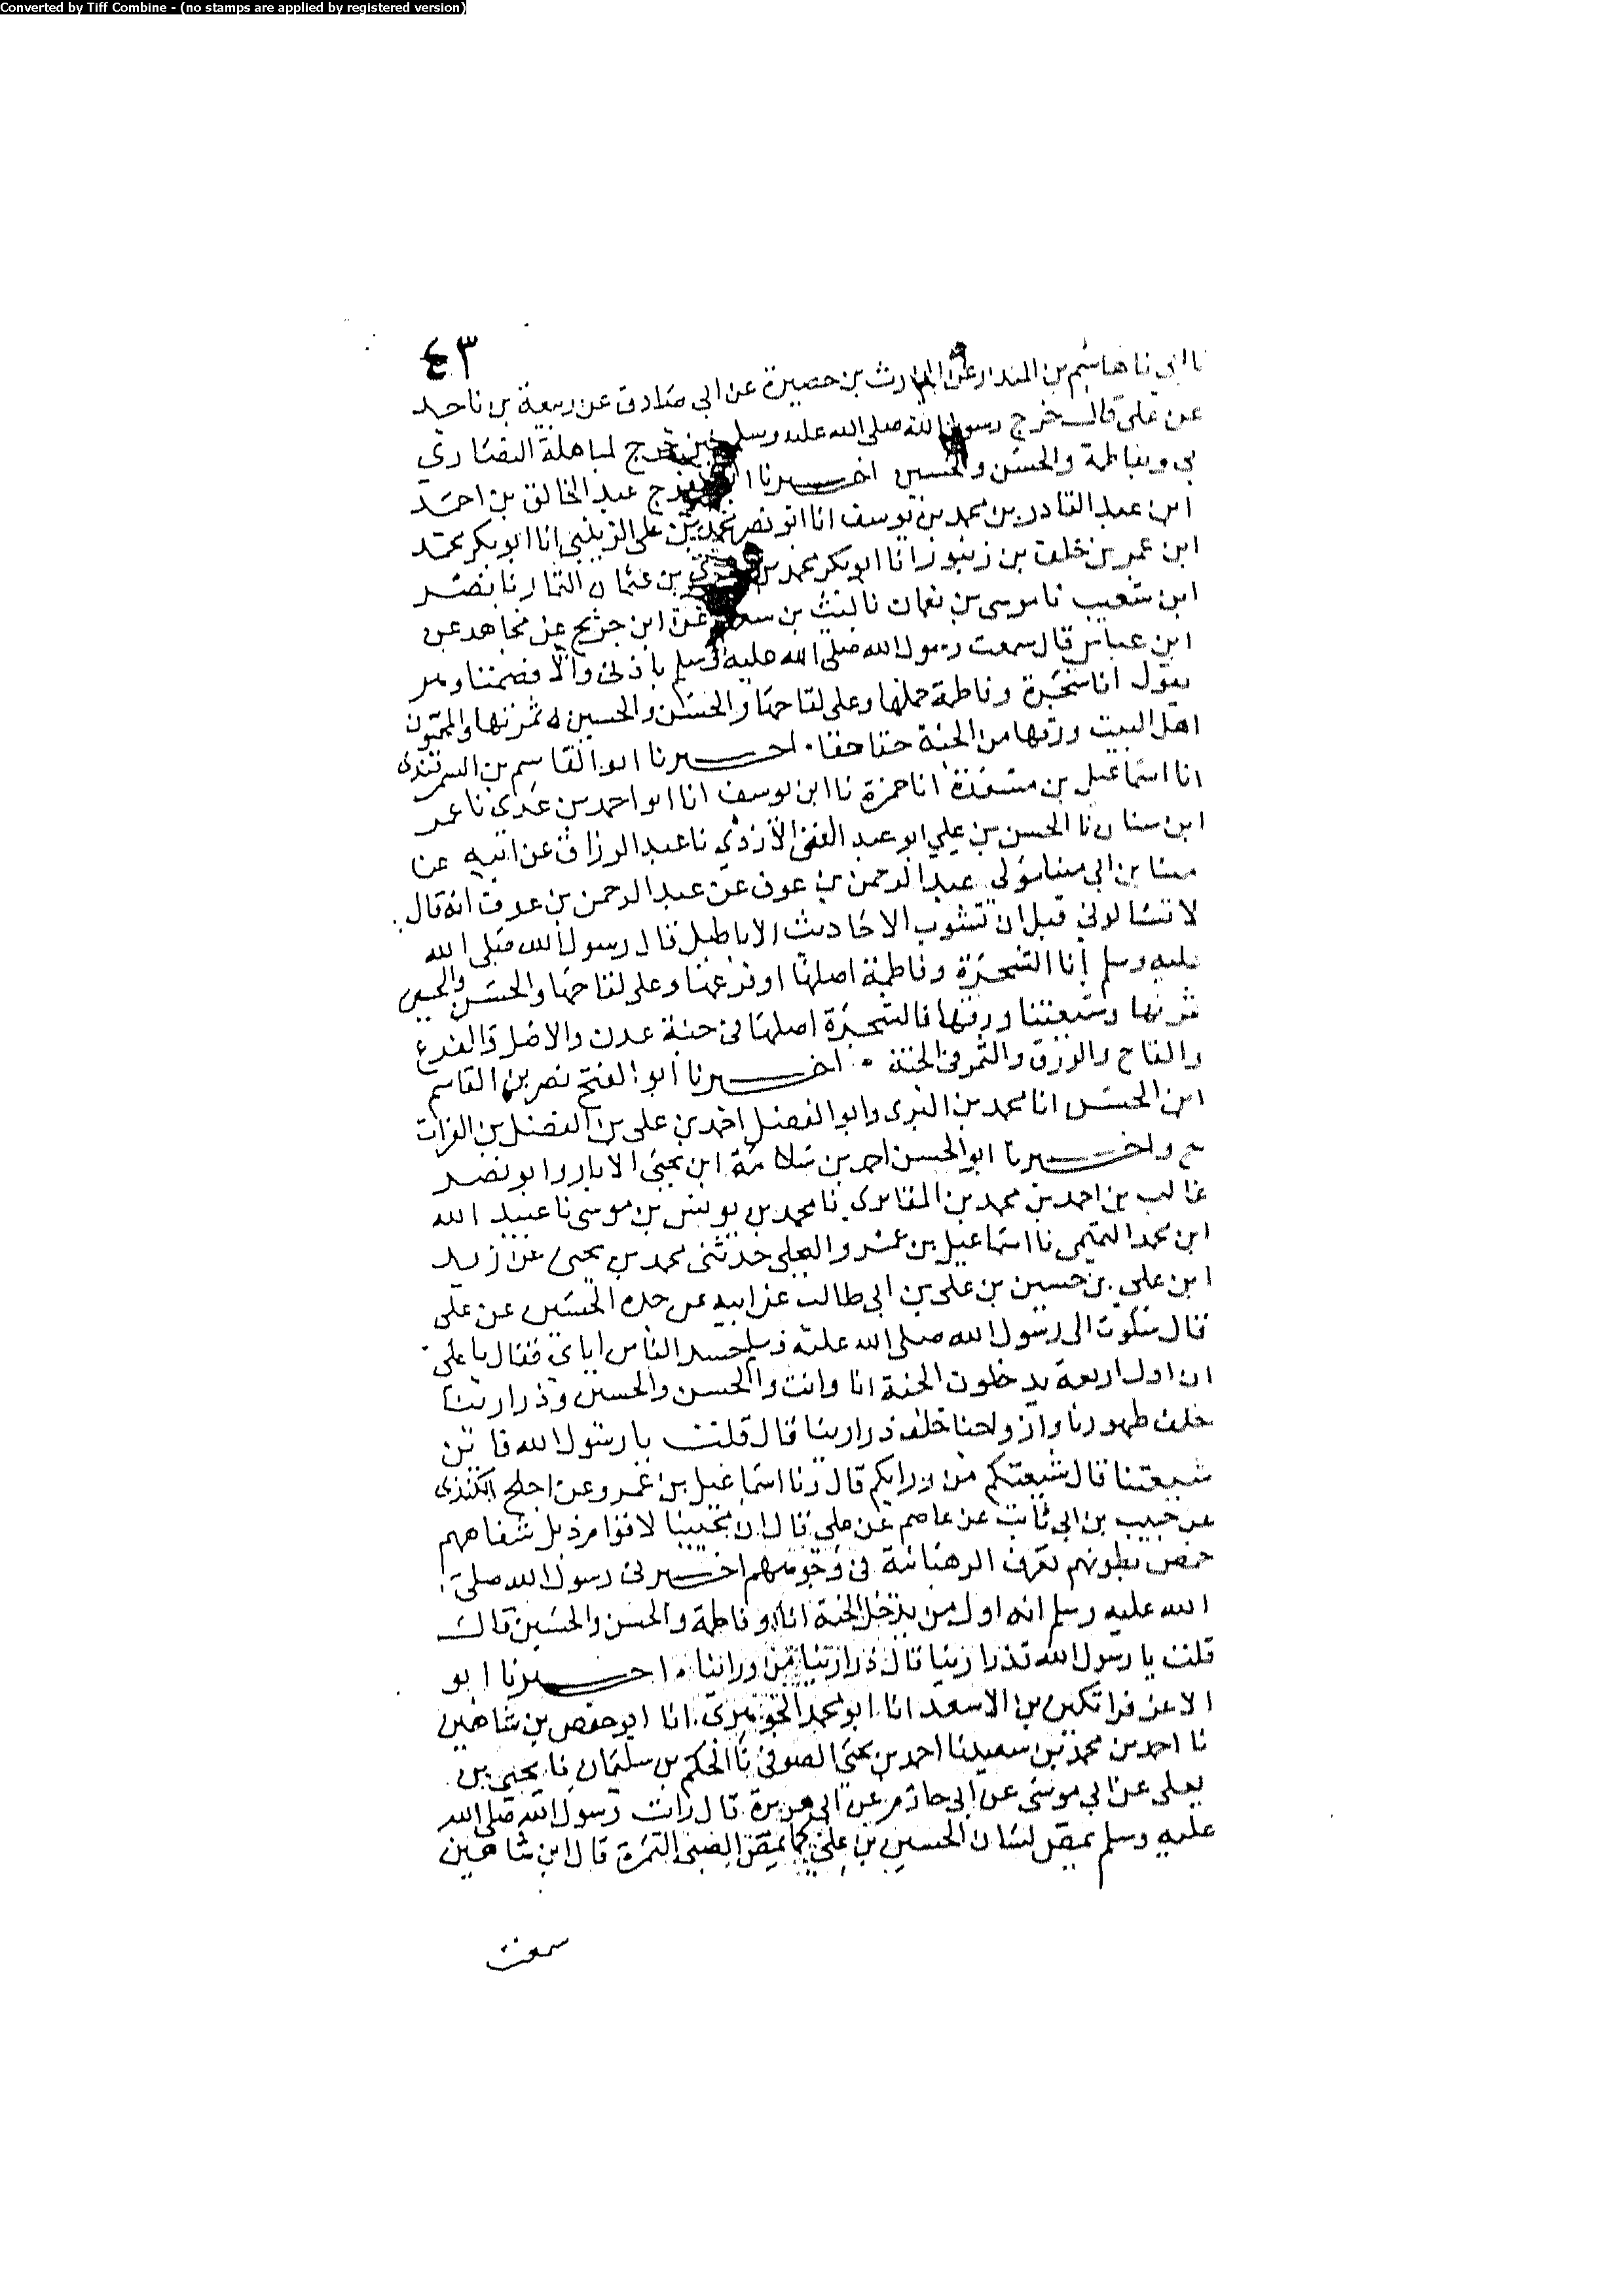 Converted by Tiff Combine - (no stamps are applied by registered version)
٤٣
نا ابي نا هاشم بن المنذر عن الحارث بن حصيرة عن ابي صادق عن ربيعة بن ناجد
عن علي قال خرج رسول الله صلى الله عليه وسلم حين خرج لمباهلة النصارى
بي وبفاطمة والحسن والحسين اخبرنا ابو الفرج عبد الخالق بن احمد
ابن عبد القادر بن محمد بن يوسف انا ابو نصر محمد بن علي الزينبي انا ابو بكر محمد
ابن عمر بن خلف بن زنبور انا ابو بكر محمد بن بن عثمان التمار نا نصر
ابن شعيب نا موسى بن نعمان نا ليث بن سعد عن ابن جريج عن مجاهد عن
ابن عباس قال سمعت رسول الله صلى الله عليه وسلم باذني والا فصمتا وهو
يقول انا شجرة وفاطمة حملها وعلي لقاحها والحسن والحسين ثمرتها والمحبون
اهل البيت ورقها من الجنة حقا حقا اخبرنا ابو القاسم بن السمرقندي
انا اسماعيل بن مسعدة انا حمزة نا ابن يوسف انا ابو احمد بن عدي نا عمر
ابن سنان نا الحسن بن علي ابو عبد الغني الازدي نا عبد الرزاق عن ابيه عن
مينا بن ابي مينا مولى عبد الرحمن بن عوف عن عبد الرحمن بن عوف انه قال
لا تسالوني قبل ان تشوب الاحاديث الاباطيل قال رسول الله صلى الله
عليه وسلم انا الشجرة وفاطمة اصلها او فرعها وعلي لقاحها والحسن والحسين
ثمرتها وشيعتنا ورقها فالشجرة اصلها في جنة عدن والاصل والفرع
واللقاح والورق والثمر في الجنة اخبرنا ابو الفتح نصر بن القاسم
ابن الحسن انا محمد بن البري وابو الفضل احمد بن علي بن الفضل بن الفرات
ح واخبرنا ابو الحسن احمد بن سلامة ابن يحيى الابار وابو نصر
غالب بن احمد بن محمد بن نا محمد بن يونس بن موسى نا عبيد الله
ابن محمد التيمي نا اسماعيل بن عمرو البجلي حدثني محمد بن يحيى عن زيد
ابن علي بن حسين بن علي بن ابي طالب عن ابيه عن جده الحسين عن علي
قال شكوت الى رسول الله صلى الله عليه وسلم حسد الناس اياي فقال يا علي
ان اول اربعة يدخلون الجنة انا وانت والحسن والحسين وذرارينا
خلف ظهورنا وازواجنا خلف ذرارينا قال قلت يا رسول الله فاين
شيعتنا قال شيعتكم من ورايكم قال ونا اسماعيل بن عمرو عن اجلح الكندي
عن حبيب بن ابي ثابت عن عاصم عن علي قال ان محبينا لاقوام ذبل شفاههم
خمص بطونهم تعرف الرهبانية في وجوههم اخبرني رسول الله صلى
الله عليه وسلم انه اول من يدخل الجنة انا وفاطمة والحسن والحسين قال
قلت يا رسول الله فذرارينا قال ذرارينا من ورائنا اخبرنا ابو
الاعز قراتكين بن الاسعد انا ابو محمد الجوهري انا ابو حفص بن شاهين
نا احمد بن محمد بن سعيد نا احمد بن يحيى الصوفي نا الحكم بن سليمان نا يحيى بن
يعلى عن ابي موسى عن ابي حازم عن ابي هريرة قال رايت رسول الله صلى الله
عليه وسلم يمص لسان الحسين بن علي كما يمص الصبي التمرة قال ابن شاهين
سمعت